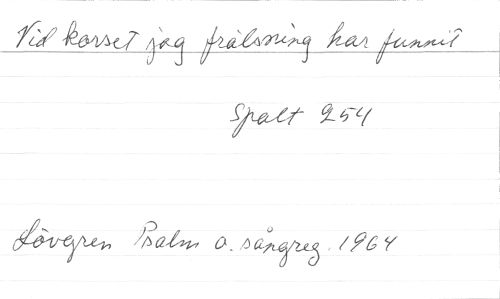 Vid korset jag frälsning har funnit
Spalt 254
Lövgren Psalm o. sångreg. 1964